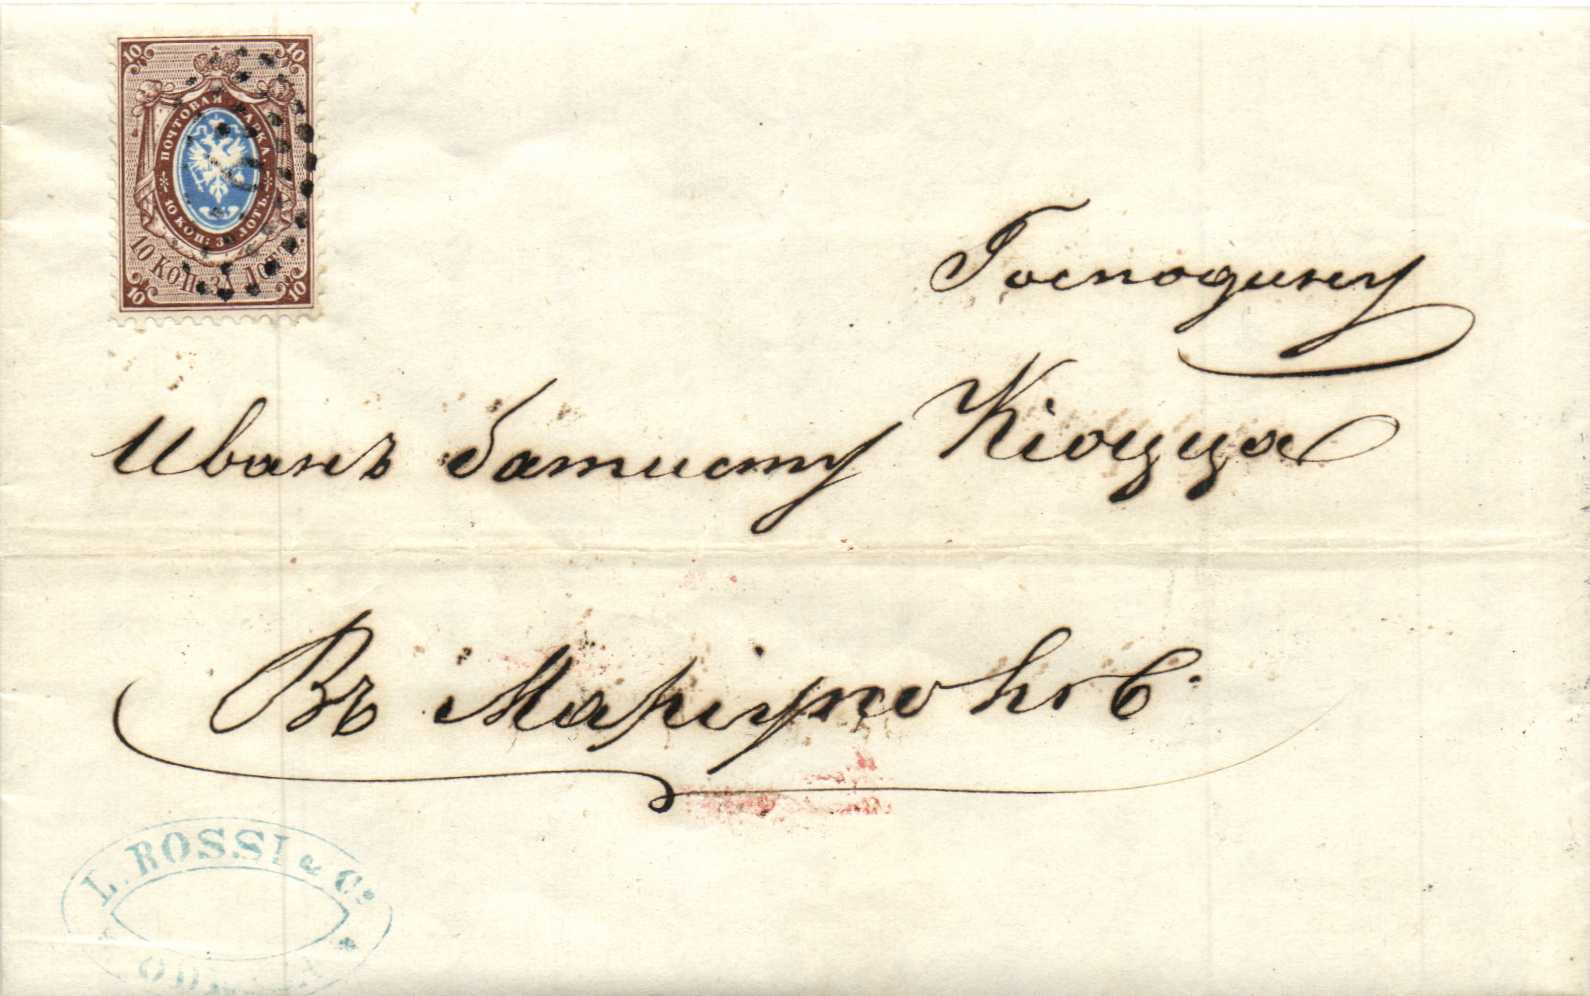 10 10
ПОЧТОВАЯ МАРКА.
10 КОП: ЗА ЛОТЪ.
10 КОП. ЗА ЛОТЪ.
10 10
Господину
Иванъ батисту Кіоцца
Въ Маріуполѣ.
L. ROSSI & Co